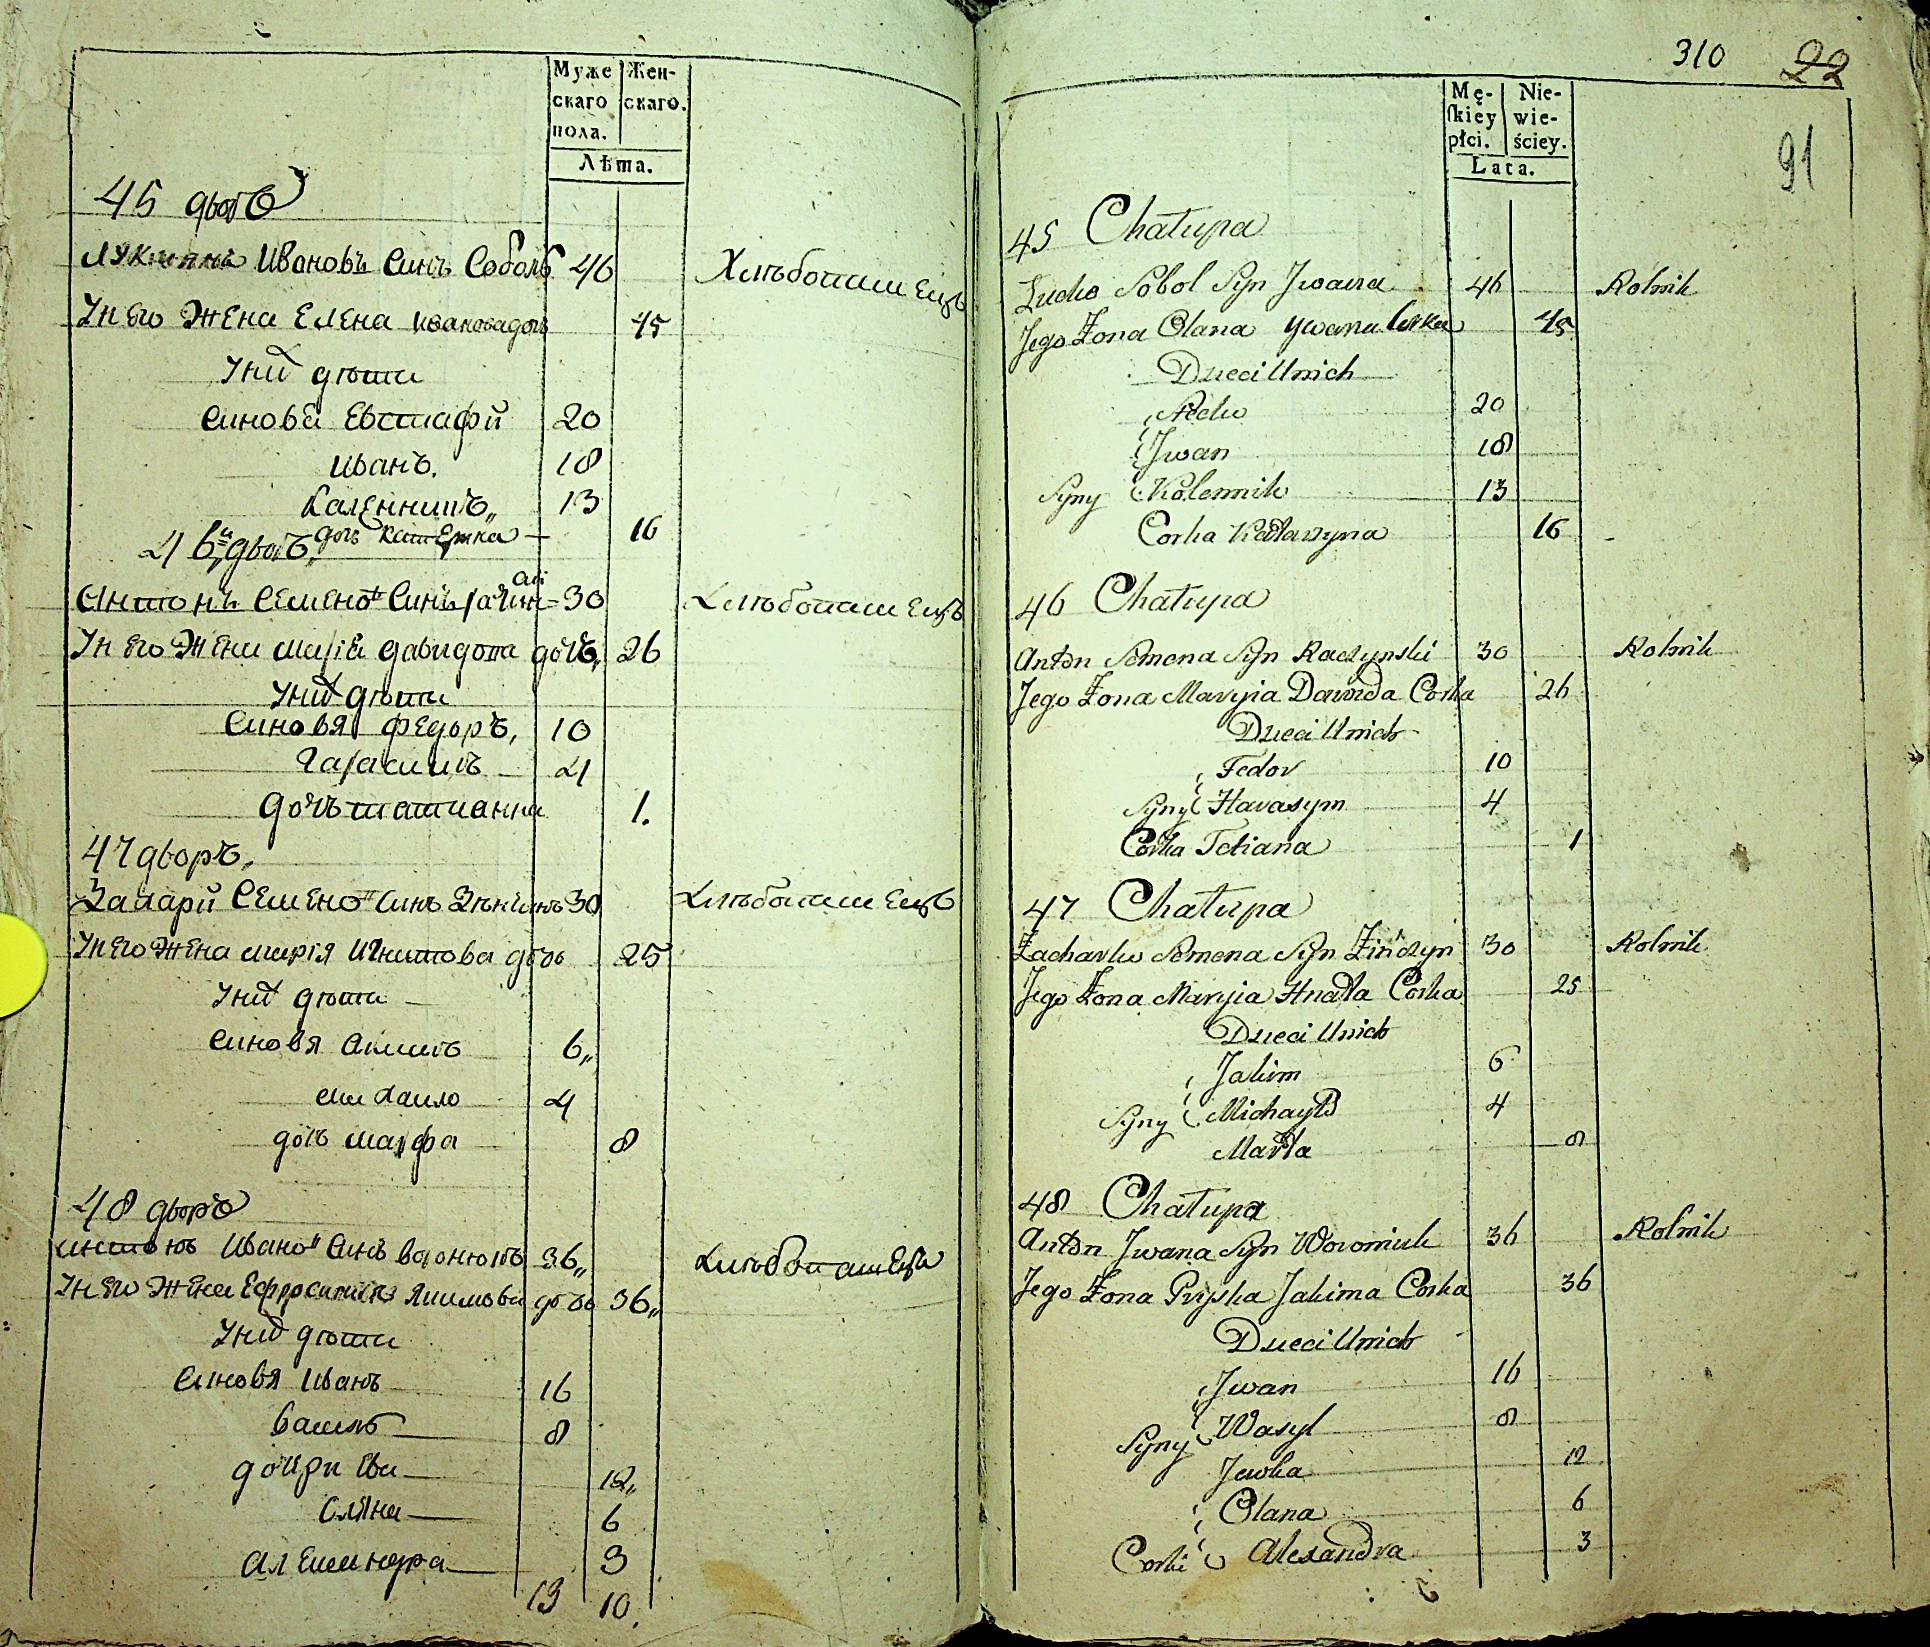 Муже Жен-
скаго скаго.
пола.
Лѣта.
45 дворъ
Лукиянъ Ивановъ Синъ Соболь 46 Хлѣбопашецъ
У него Жена Елена Иванова дочь 45
У них дѣти
Синовя Евстафий 20
Иванъ. 18
Каленникъ„ 13
дочь Катерина 16
46й дворъ,
Антонъ Семеновъ Синъ Рачинский 30 Хлѣбопашецъ
У него Жена Мария Давидова дочь„ 26
У них дѣти
Синовя Федоръ, 10
Гарасимъ 4
дочъ Татианна 1.
47 дворъ,
Захарий Семеновъ Синъ Зѣнчинъ 30 Хлѣбопашецъ
У него Жена Мария Игнатова дочь 25
У них дѣти
Синовя Акимъ 6„
Михаило 4
дочъ Марфа 8
48 дворъ
Антонъ Ивановъ Синъ Воронюкъ 36„ Хлѣбопашецъ
У него Жена Ефросиния Якимова дочь 36„
У них дѣти
Синовя Иванъ 16
Василь 8
дочери Ева 12„
Оляна 6
Александра 3
13 10.
310 22
91
Mę- Nie-
ſkiey wie-
płci. ściey.
Lata.
45 Chałupa
Lucko Sobol Syn Jwana 46 Rolnik
Jego Żona Olana Ywana Corka 45
Dzieci Unich
Jwan 18
Syny Kalennik 13
Corka Katarzyna 16
20
46 Chałupa
Anton Semena Syn Raczynski 30 Rolnik
Jego Żona Maryia Dawida Corka 26
Dzieci Unich
Fedor 10
Syny Harasym 4
Corka Tetiana 1
47 Chałupa
Zacharko Semena Syn Zińczyn 30 Rolnik
Jego Żona Maryia Hnata Corka 25
Dzieci Unich
Jakim 6
Syny Michayło 4
Marta 8
48 Chałupa
Anton Jwana Syn Woroniuk 36 Rolnik
Jego Żona Pryska Jakima Corka 36
Dzieci Unich
Jwan 16
Syny Wasyl 8
Jewka 12
Olana 6
Corki Alexandra 3